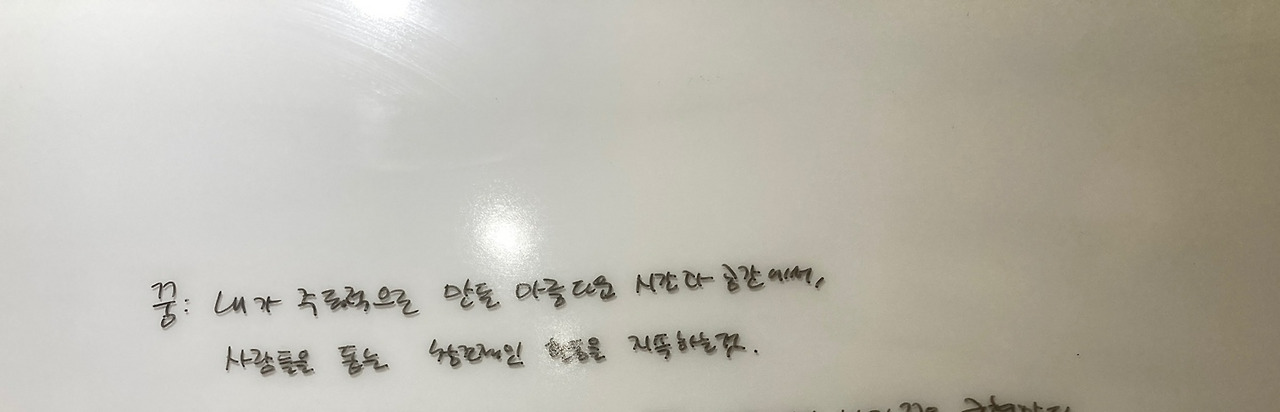 꿈: 내가 주도적으로 만든 아름다운 시간과 공간에서,
사람들을 돕는 창조적인 활동을 지속하는것.